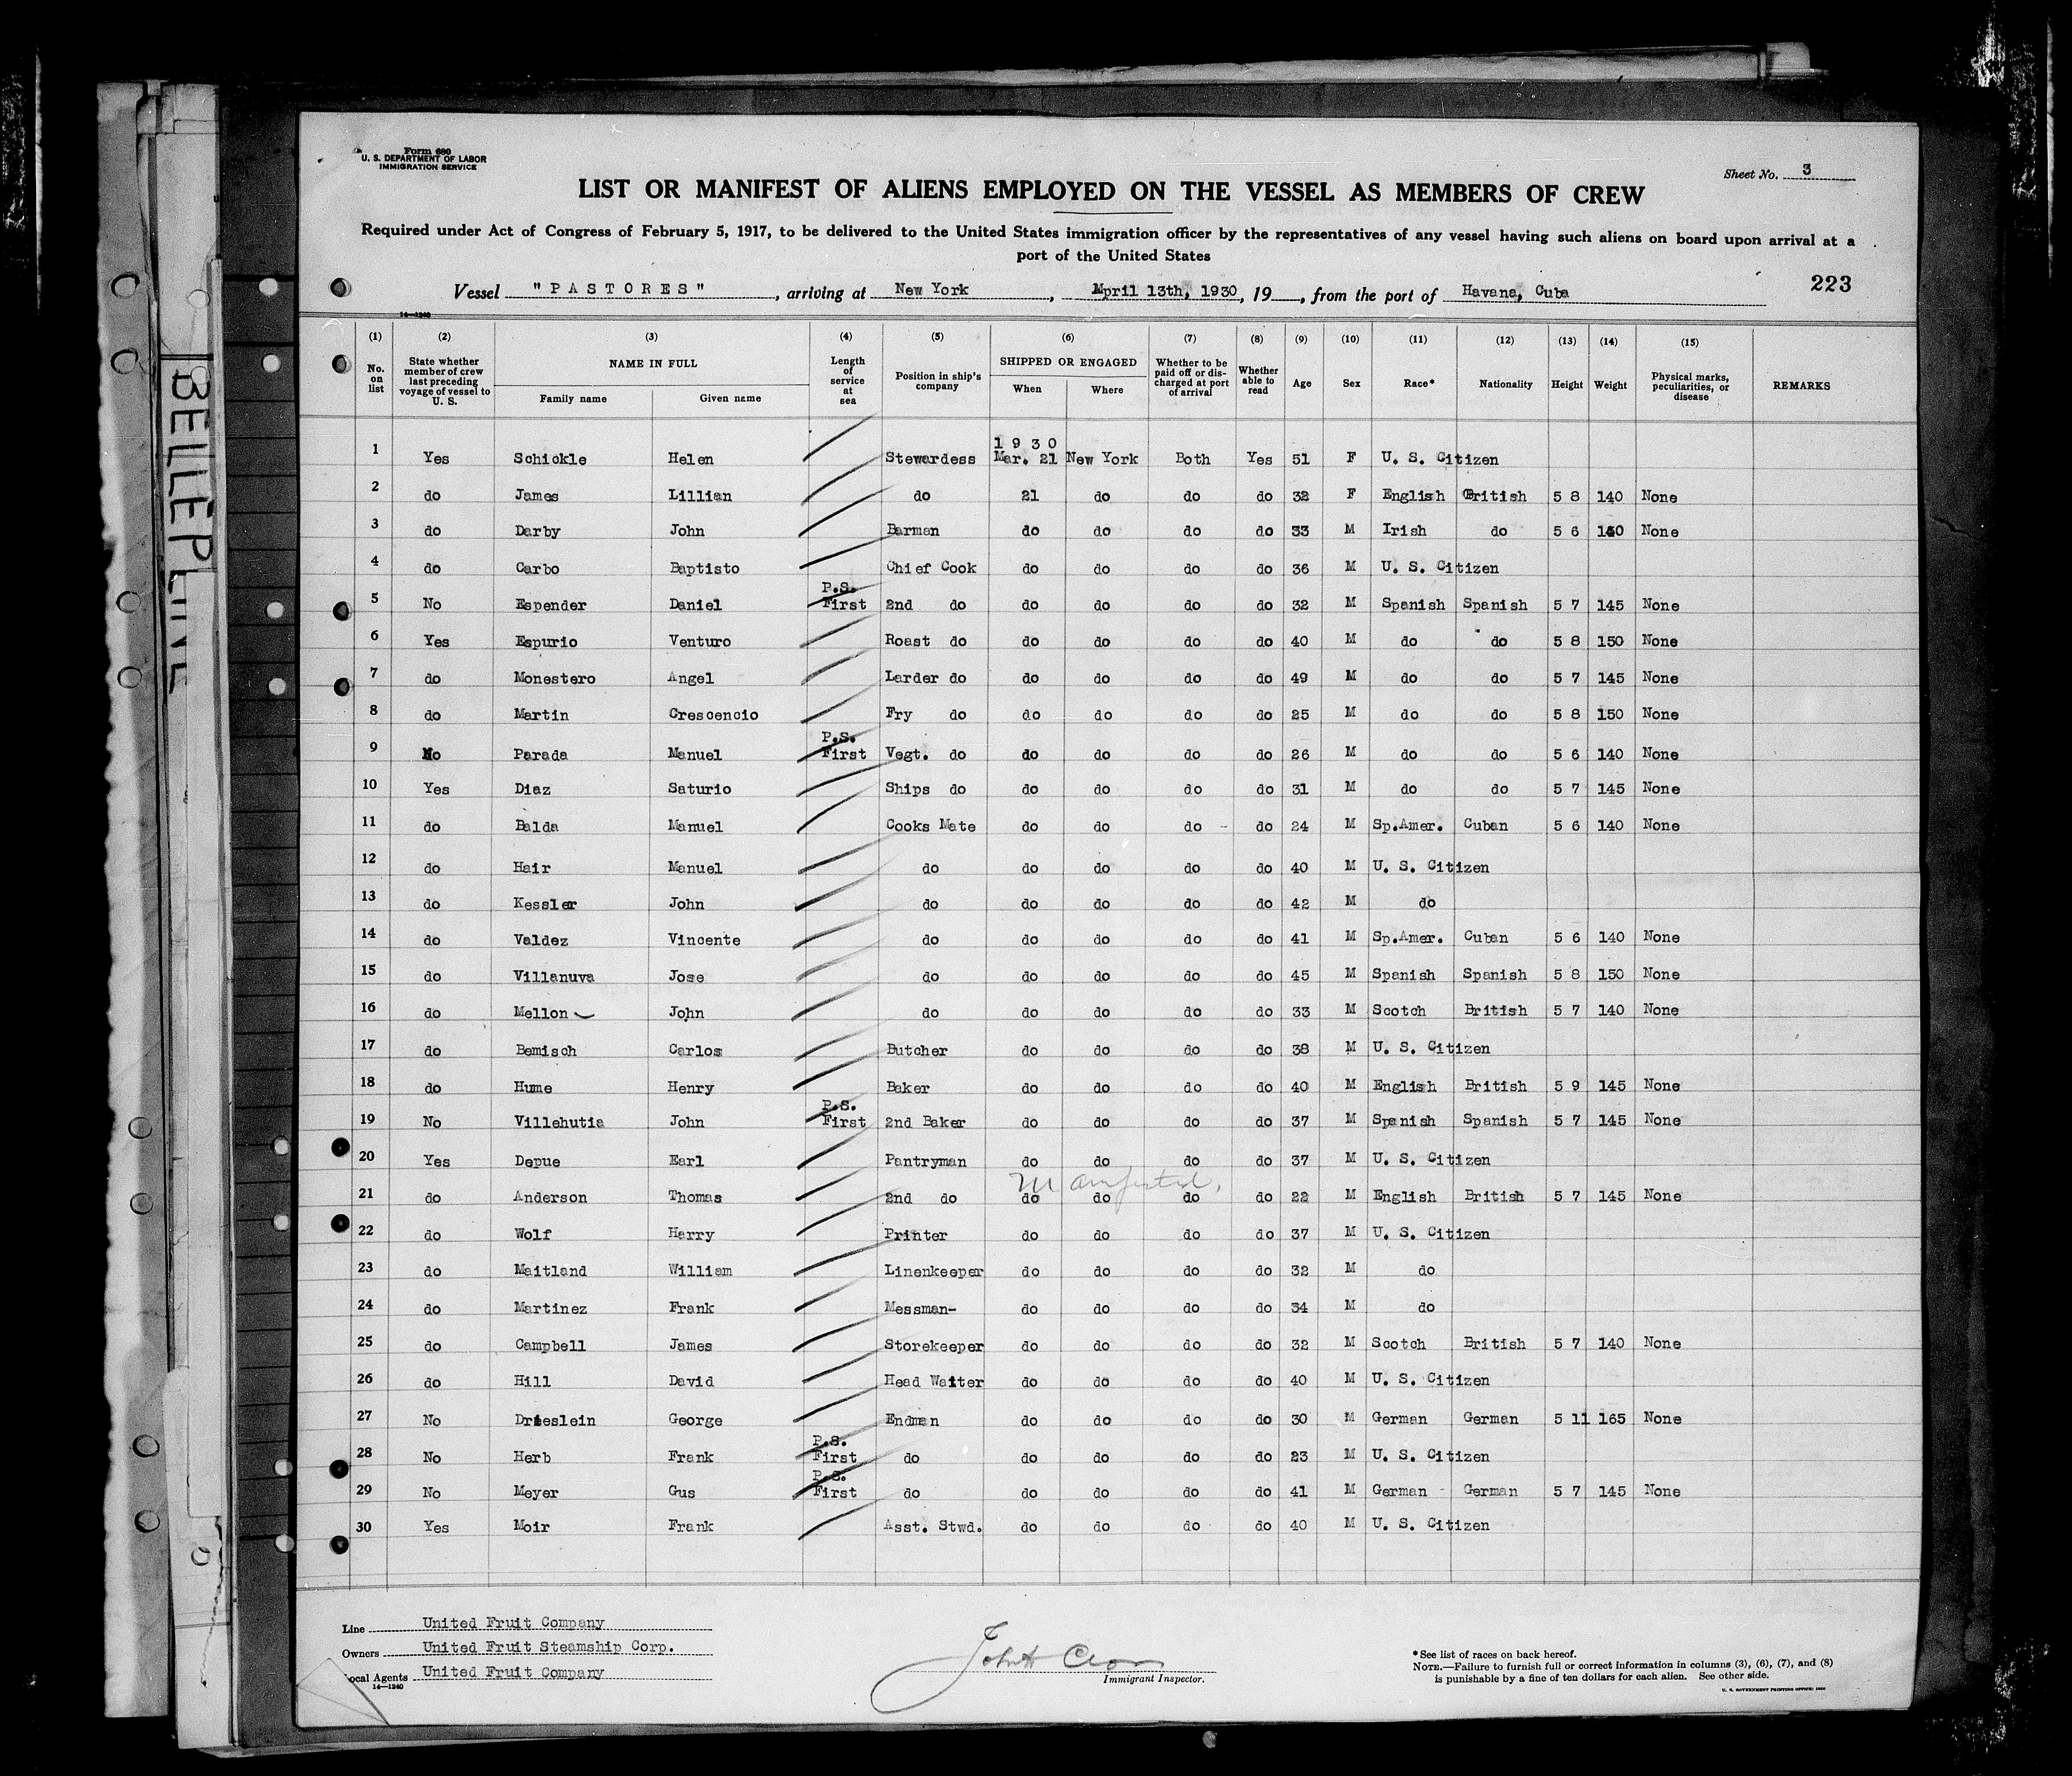 Form 680
U. S. DEPARTMENT OF LABOR
IMMIGRATION SERVICE
Sheet No. 3
LIST OR MANIFEST OF ALIENS EMPLOYED ON THE VESSEL AS MEMBERS OF CREW
Required under Act of Congress of February 5, 1917, to be delivered to the United States immigration officer by the representatives of any vessel having such aliens on board upon arrival at a
port of the United States
Vessel "PASTORES", arriving at New York, April 13th, 1930, 19, from the port of Havana, Cuba
223
14—1240
(1) (2) (3) (4) (5) (6) (7) (8) (9) (10) (11) (12) (13) (14) (15)
No. on list
State whether member of crew last preceding voyage of vessel to U. S.
NAME IN FULL
Family name Given name
Length of service at sea
Position in ship's company
SHIPPED OR ENGAGED
When Where
Whether to be paid off or discharged at port of arrival
Whether able to read
Age Sex Race* Nationality Height Weight
Physical marks, peculiarities, or disease
REMARKS
1930
1 Yes Schickle Helen Stewardess Mar. 21 New York Both Yes 51 F U. S. Citizen
2 do James Lillian do 21 do do do 32 F English British 5 8 140 None
3 do Darby John Barman do do do do 33 M Irish do 5 6 140 None
4 do Carbo Baptisto Chief Cook do do do do 36 M U. S. Citizen
P.S.
5 No Espender Daniel First 2nd do do do do do 32 M Spanish Spanish 5 7 145 None
6 Yes Espurio Venturo Roast do do do do do 40 M do do 5 8 150 None
7 do Monestero Angel Larder do do do do do 49 M do do 5 7 145 None
8 do Martin Crescencio Fry do do do do do 25 M do do 5 8 150 None
P.S.
9 No Parada Manuel First Vegt. do do do do do 26 M do do 5 6 140 None
10 Yes Diaz Saturio Ships do do do do do 31 M do do 5 7 145 None
11 do Balda Manuel Cooks Mate do do do do 24 M Sp.Amer. Cuban 5 6 140 None
12 do Hair Manuel do do do do do 40 M U. S. Citizen
13 do Kessler John do do do do do 42 M do
14 do Valdez Vincente do do do do do 41 M Sp.Amer. Cuban 5 6 140 None
15 do Villanuva Jose do do do do do 45 M Spanish Spanish 5 8 150 None
16 do Mellon John do do do do do 33 M Scotch British 5 7 140 None
17 do Bemisch Carlos Butcher do do do do 38 M U. S. Citizen
18 do Hume Henry Baker do do do do 40 M English British 5 9 145 None
P.S.
19 No Villehutia John First 2nd Baker do do do do 37 M Spanish Spanish 5 7 145 None
20 Yes Depue Earl Pantryman do do do do 37 M U. S. Citizen
Manifested,
21 do Anderson Thomas 2nd do do do do do 22 M English British 5 7 145 None
22 do Wolf Harry Printer do do do do 37 M U. S. Citizen
23 do Maitland William Linenkeeper do do do do 32 M do
24 do Martinez Frank Messman- do do do do 34 M do
25 do Campbell James Storekeeper do do do do 32 M Scotch British 5 7 140 None
26 do Hill David Head Waiter do do do do 40 M U. S. Citizen
27 No Drieslein George Endman do do do do 30 M German German 5 11 165 None
P.S.
28 No Herb Frank First do do do do do 23 M U. S. Citizen
P.S.
29 No Meyer Gus First do do do do do 41 M German German 5 7 145 None
30 Yes Moir Frank Asst. Stwd. do do do do 40 M U. S. Citizen
Line United Fruit Company
Owners United Fruit Steamship Corp.
Local Agents United Fruit Company
14—1240
Immigrant Inspector.
*See list of races on back hereof.
NOTE.—Failure to furnish full or correct information in columns (3), (6), (7), and (8)
is punishable by a fine of ten dollars for each alien. See other side.